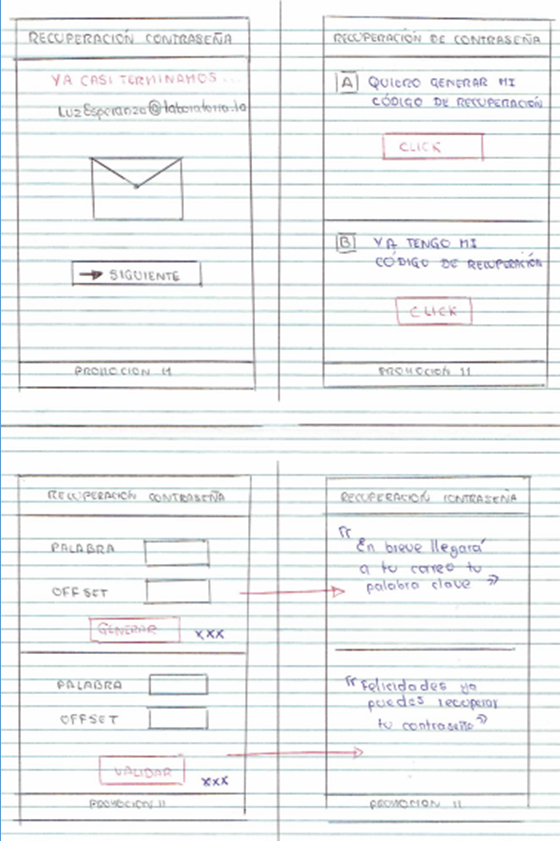 RECUPERACIÓN CONTRASEÑA
YA CASI TERMINAMOS...
LuzEsperanza@laboratoria.la
SIGUIENTE
PROMOCION 11
RECUPERACIÓN DE CONTRASEÑA
A QUIERO GENERAR MI
CÓDIGO DE RECUPERACIÓN
CLICK
B YA TENGO MI
CÓDIGO DE RECUPERACIÓN
CLICK
PROMOCIÓN 11
RECUPERACIÓN CONTRASEÑA
PALABRA
OFFSET
GENERAR xxx
PALABRA
OFFSET
VALIDAR xxx
PROMOCION 11
RECUPERACIÓN CONTRASEÑA
"En breve llegará
a tu correo tu
palabra clave"
"Felicidades ya
puedes recuperar
tu contraseña"
PROMOCION 11